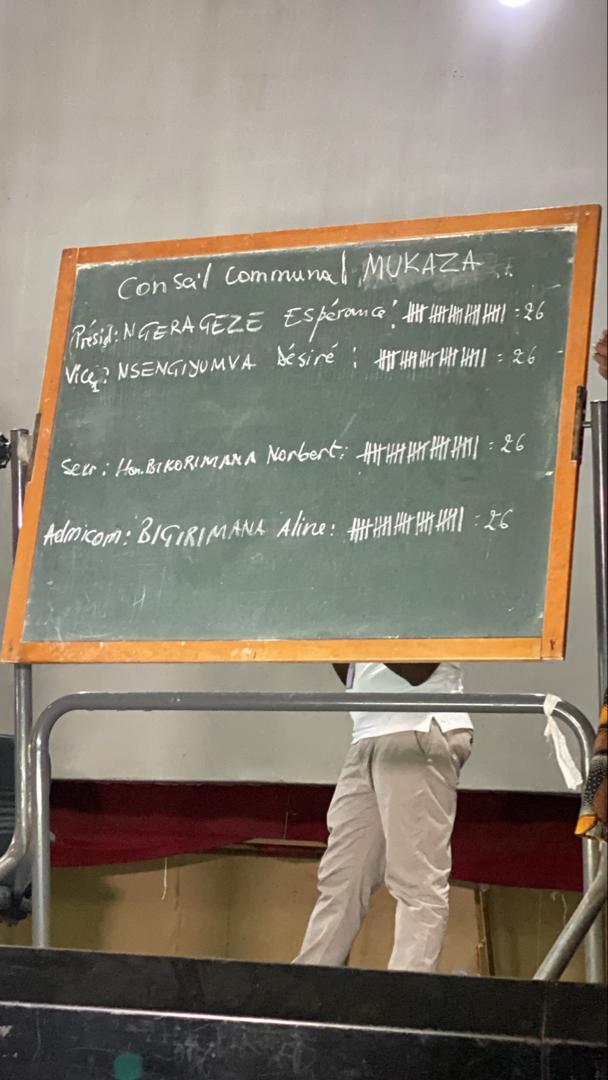 Conseil Communal MUKAZA
Présid: NGERAGEZE Espérance: = 26
Vice: NSENGIYUMVA Désiré : = 26
Secr: Hon. BIKORIMANA Norbert: = 26
Admicom: BIGIRIMANA Aline: = 26